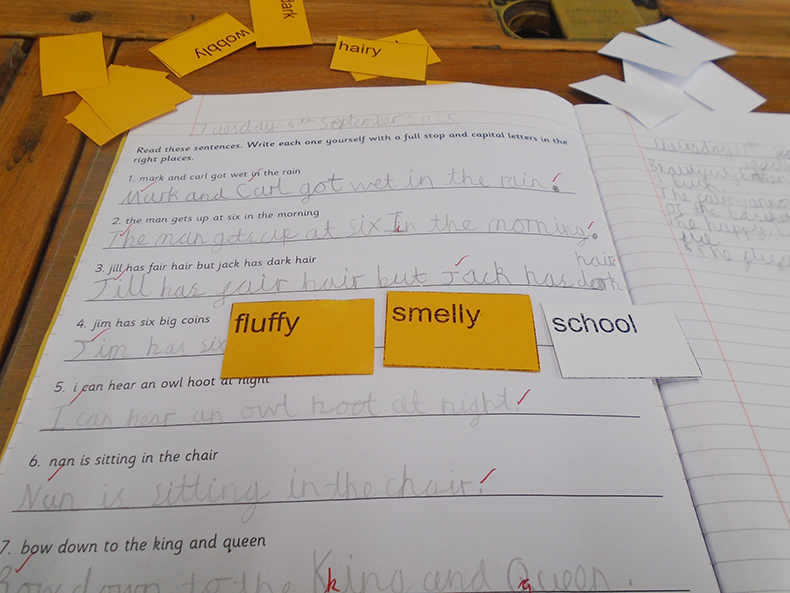 dark
wobbly
hairy
Tuesday 9th September 2025
Read these sentences. Write each one yourself with a full stop and capital letters in the
right places.
1. mark and carl got wet in the rain
Mark and Carl got wet in the rain.
2. the man gets up at six in the morning
The man gets up at six In the morning.
3. jill has fair hair but jack has dark hair
hair
Jill has fair hair but Jack has dark
4. jim has six big coins
Jim has six
fluffy
smelly
school
5. i can hear an owl hoot at night
I can hear an owl hoot at night.
6. nan is sitting in the chair
Nan is sitting in the chair.
7. bow down to the king and queen
Bow down to the King and Queen.
Thursday 11th
Beautiful,
The
the happy